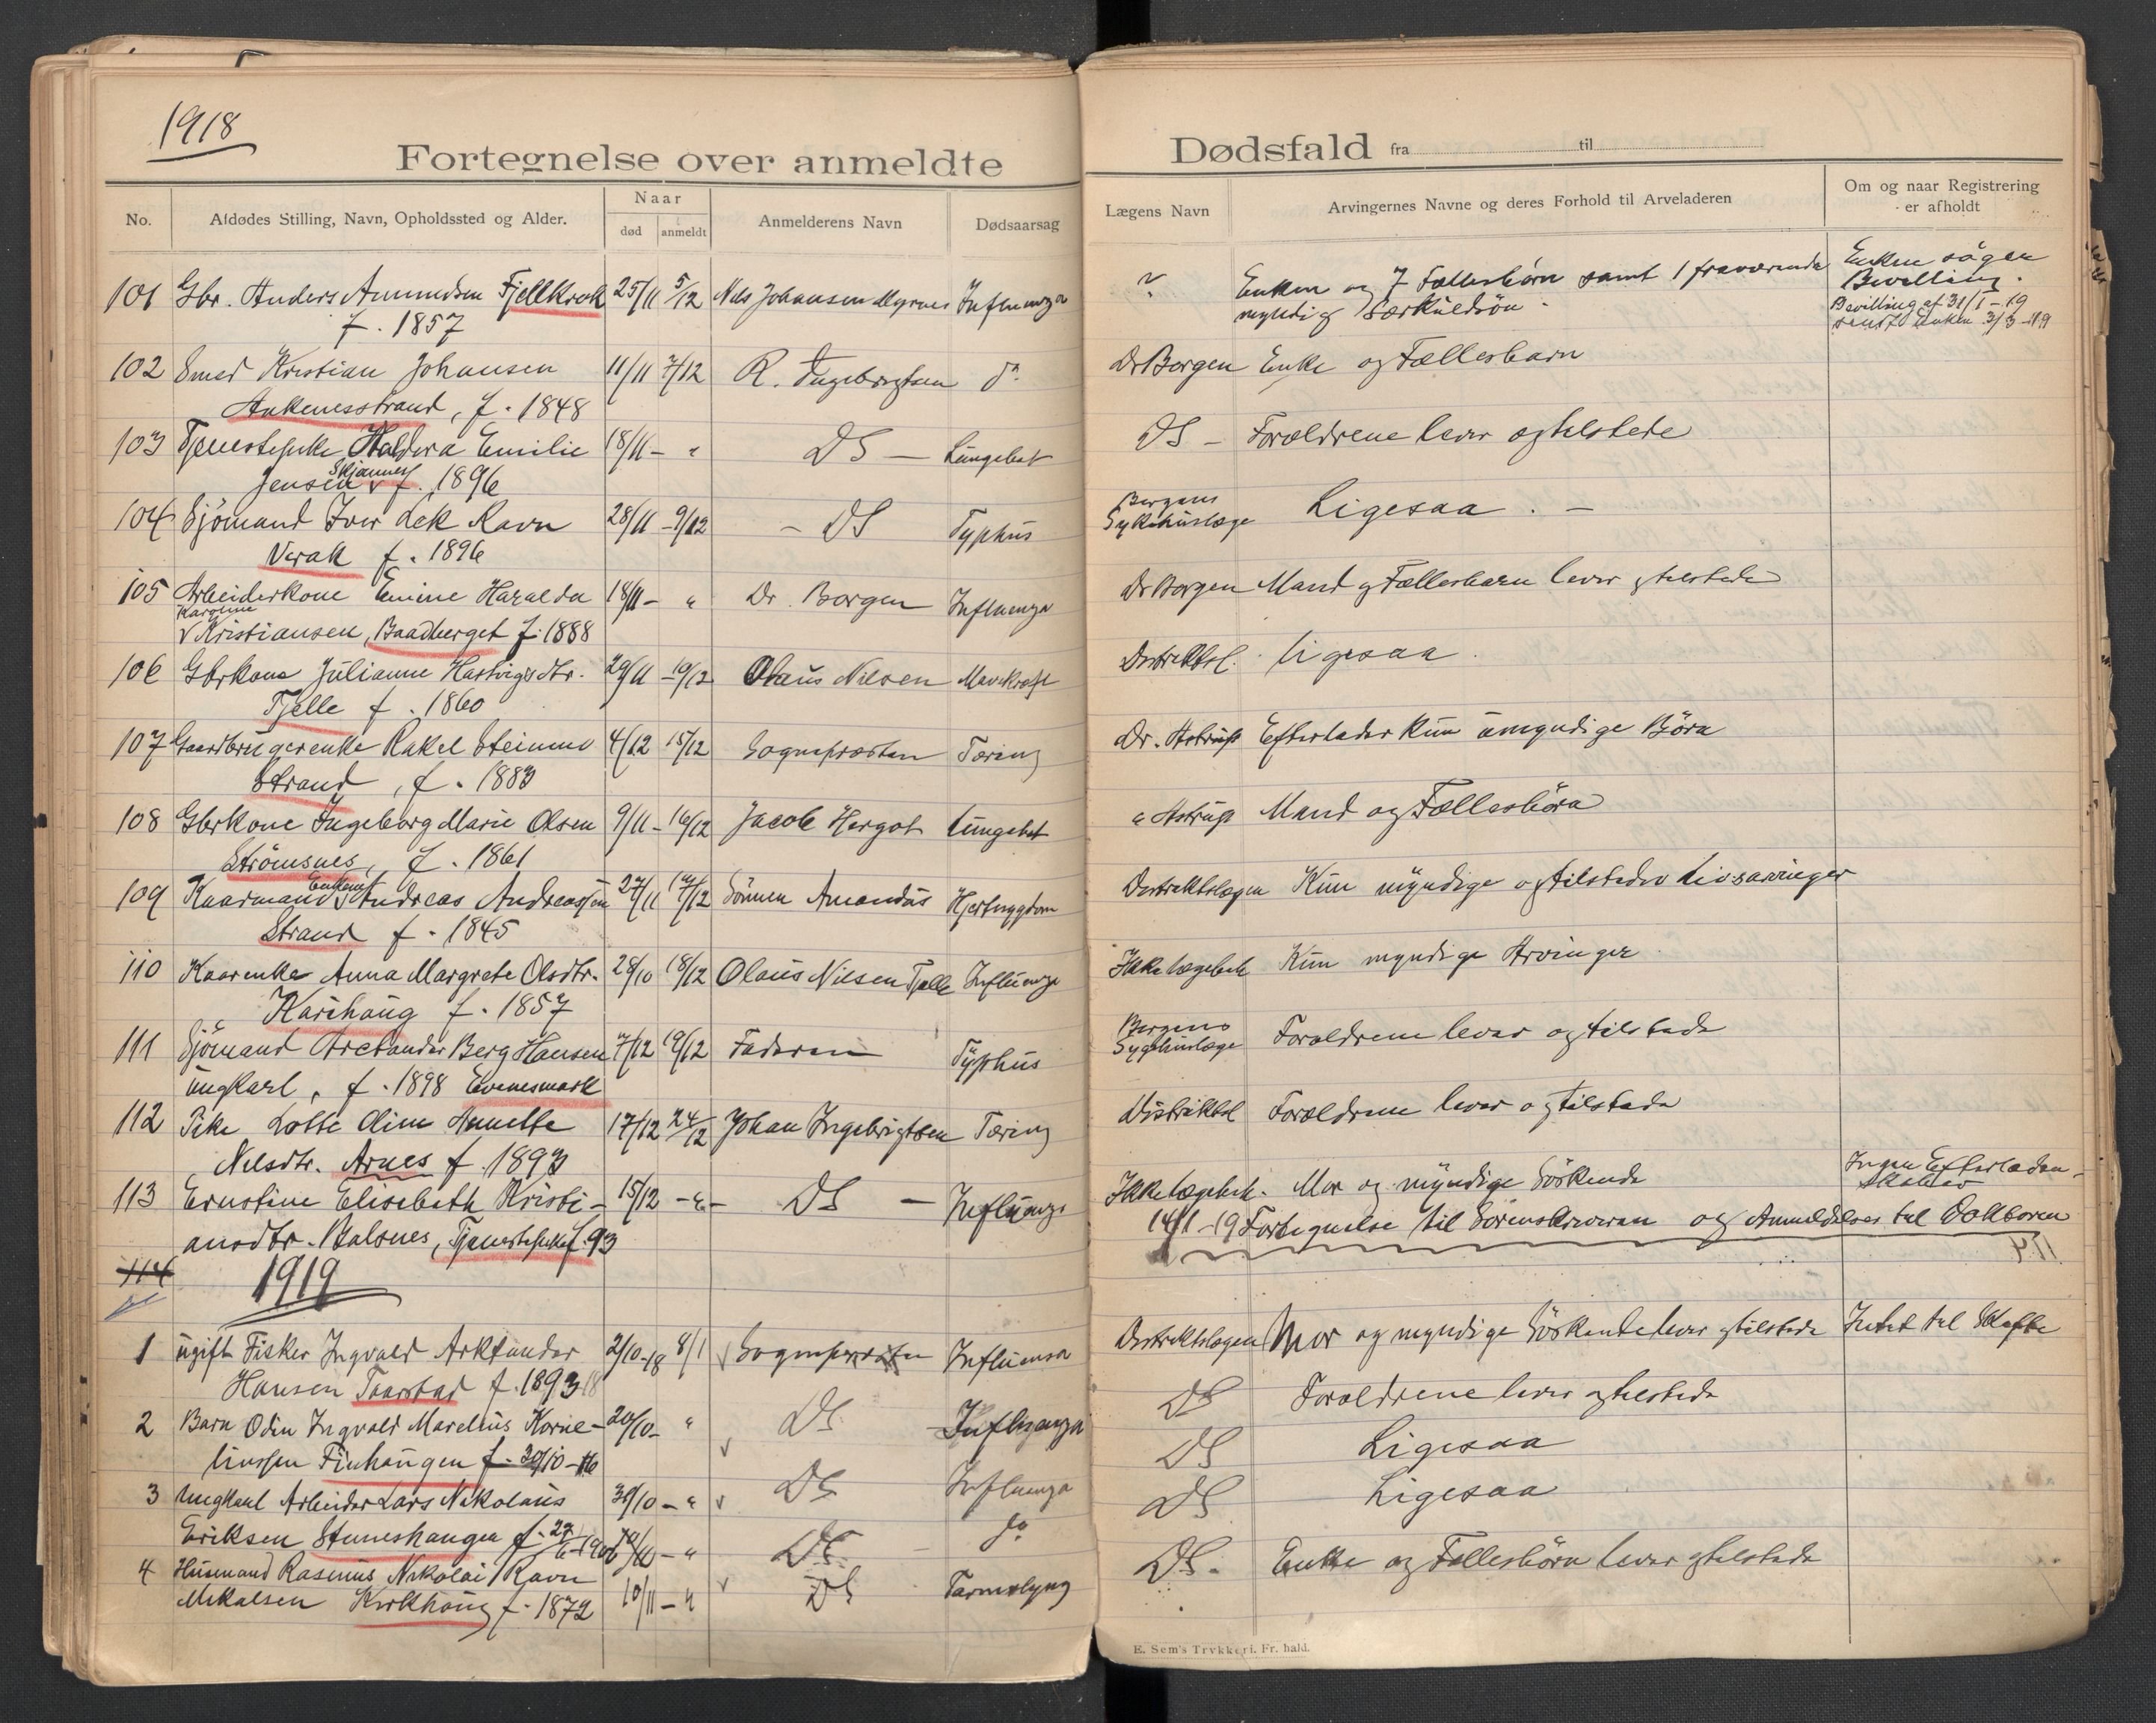 1918
Fortegnelse over anmeldte
Dødsfald fra til
No.
Afdødes Stilling, Navn, Opholdssted og Alder.
Naar
død
anmeldt
Anmelderens Navn
Dødsaarsag
Lægens Navn
Arvingernes Navne og deres Forhold til Arveladeren
Om og naar Registrering
er afholdt
101 Gbr. Anders Amundsen Fjellkrok 25/11 5/12 Nils Johansen Myrnes Influenza ? Enken og 7 Fællesbörn samt 1 fraværende Enken søger
f. 1857 myndig Særkuldsön. Bevilling.
Bevilling af 31/1-19
sendt Enken 3/3-19
102 Smed Kristian Johansen 11/11 7/12 R. Ingebrigtsen do Dr Borgen Enke og Fællesbarn
Ankenesstrand, f. 1848
103 Tjenestepike Haldora Emilie 18/11 - " DS - Lungebet DS - Forældrene lever og tilstede
Skjannes
Jensen v f. 1896
104 Sjömand Iver Lek Ravn 28/11 - 9/12 - DS Typhus Bergens Ligesaa. -
Sykehuslæge
Verak f. 1896
105 Arbeiderkone Emine Haralda 18/11 - " Dr. Borgen Influenza Dr Borgen Mand og Fællesbarn lever og tilstede
Karoline
v Kristiansen, Baadberget f. 1888
106 Gbrkone Julianne Hartvigsdtr. 29/11 - 10/12 Olaus Nilsen Mavekræft Distriktsl. Ligesaa.
Tjelle f. 1860
107 Gaardbrugerenke Rakel Steinmo 4/12 15/12 Sognepræsten Tæring Dr. Astrup Efterlader kun umyndige Börn
Strand, f. 1883
108 Gbrkone Ingeborg Marie Olsen 9/11 - 16/12 Jacob Hergot Lungebet " Astrup Mand og Fællesbörn
Strömsnes, f. 1861
109 Kaarmand Enkem Andreas Andreassen 27/11 17/12 Sönnen Amandus Hjertesygdom Distriktslægen Kun myndige og tilstedev Livsarvinger
Strand f. 1845
110 Kaarenke Anna Margrete Olsdtr. 28/10 18/12 Olaus Nilsen Tjelle Influenza Ikke lægebeh Kun myndige Arvinger
Karihaug f. 1857
111 Sjömand Arctander Berg Hansen 7/12 19/12 Faderen Typhus Bergens Forældrene lever og tilstede
Sygehuslæge
ungkarl, f. 1898 Evenesmark
112 Pike Lotte Oline Anette 17/12 24/12 Johan Ingebrigtsen Tæring Distriktsl Forældrene lever og tilstede
Nilsdtr. Arnes f. 1893
113 Ernstine Elisebeth Kristi- 15/12 - " - DS - Influenza Ikke lægebeh. Mor og myndige Söskende Ingen Efterladen-
skaber
ansdtr. Balsnes, Tjenestepike f. 93
14/1-19 Fortegnelse til Sorenskriveren og Anmeldelser til Doktoren
114
1919
1 ugift Fisker Ingvald Arktander 2/10-18 8/1 v Sognepræsten Influensa Distriktslægen Mor og myndige Söskende lever og tilstede Intet til Skifte
Hansen Taarstad f. 1893
2 Barn Odin Ingvald Marelius Korne- 20/10- " v DS Influenza DS Forældrene lever og tilstede
liussen Finhaugen f. 30/10-16
3 Ungkarl Arbeider Lars Nikolaus 30/10 - " v DS Influenza DS Ligesaa
Eriksen Steneshaugen f. 27/6-1900 - " DS do DS Ligesaa
4 Husmand Rasmus Nikolai Ravn 10/11 - " v DS Tarmslyng DS. Enke og Fællesbörn lever og tilstede
Mikalsen Kirkhaug f. 1872
E. Sem's Trykkeri. Fr. hald.